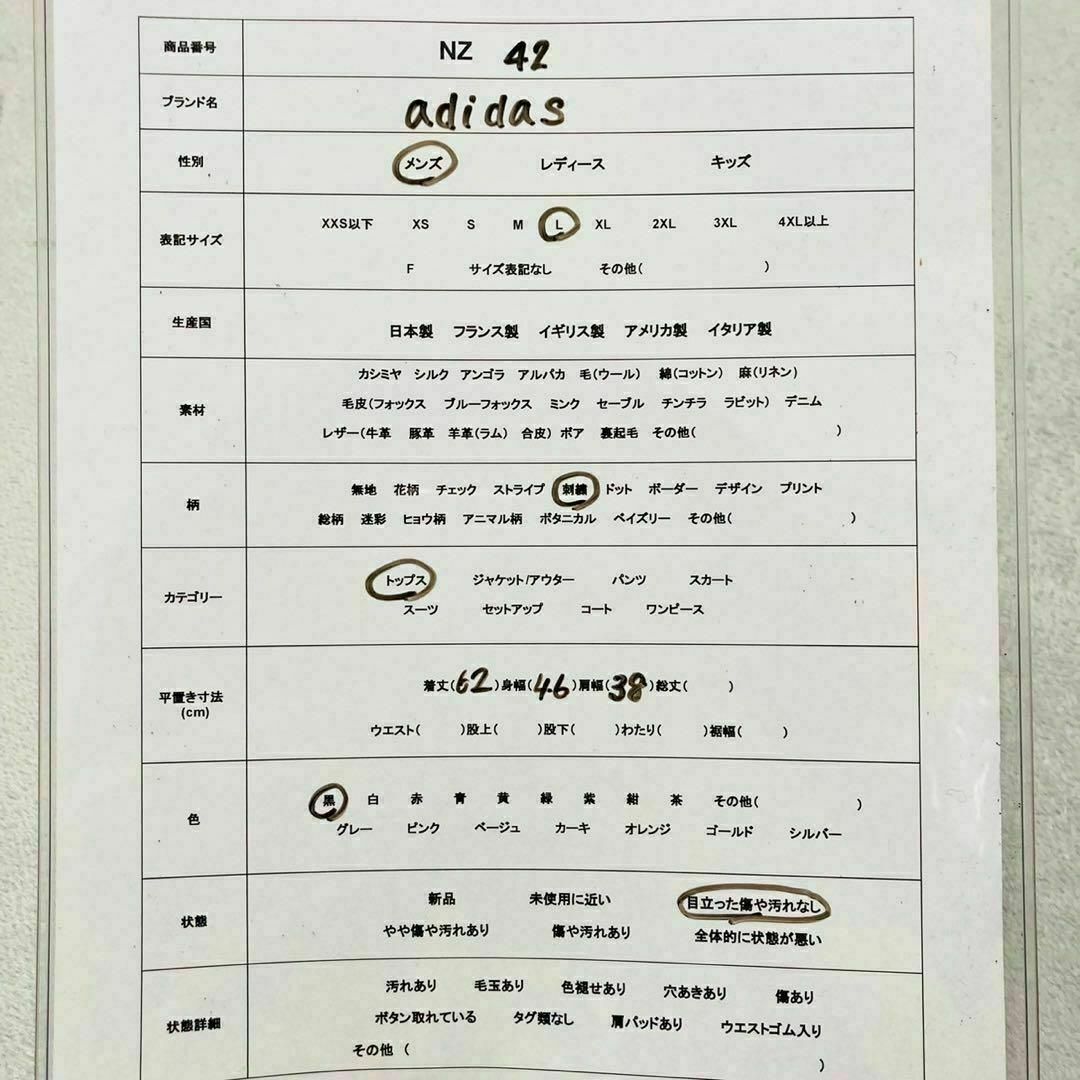 商品番号 NZ 42
ブランド名 adidas
性別 メンズ レディース キッズ
表記サイズ XXS以下 XS S M L XL 2XL 3XL 4XL以上
F サイズ表記なし その他( )
生産国 日本製 フランス製 イギリス製 アメリカ製 イタリア製
カシミヤ シルク アンゴラ アルパカ 毛(ウール) 綿(コットン) 麻(リネン)
素材 毛皮(フォックス ブルーフォックス ミンク セーブル チンチラ ラビット) デニム
レザー(牛革 豚革 羊革(ラム) 合皮) ボア 裏起毛 その他( )
柄 無地 花柄 チェック ストライプ 刺繍 ドット ボーダー デザイン プリント
総柄 迷彩 ヒョウ柄 アニマル柄 ボタニカル ペイズリー その他( )
カテゴリー トップス ジャケット/アウター パンツ スカート
スーツ セットアップ コート ワンピース
平置き寸法 着丈(62)身幅(46)肩幅(38)総丈( )
(cm) ウエスト( )股上( )股下( )わたり( )裾幅( )
色 黒 白 赤 青 黄 緑 紫 紺 茶 その他( )
グレー ピンク ベージュ カーキ オレンジ ゴールド シルバー
状態 新品 未使用に近い 目立った傷や汚れなし
やや傷や汚れあり 傷や汚れあり 全体的に状態が悪い
状態詳細 汚れあり 毛玉あり 色褪せあり 穴あきあり 傷あり
ボタン取れている タグ類なし 肩パッドあり ウエストゴム入り
その他 ( )